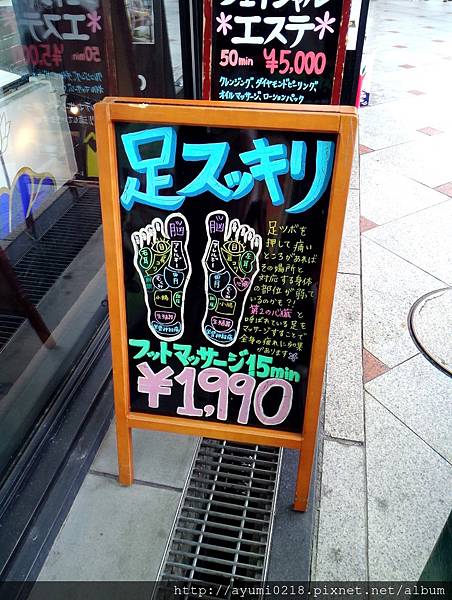 フェイシャル
*エステ*
50min ¥5,000
クレンジング、ダイヤモンドピーリング
オイルマッサージ、ローションパック
足スッキリ
脳 脳
足ツボを
押して痛い
ところがあれば
その場所と
対応する身体
の部位が弱って
いるのかも?!
第2の心臓と
呼ばれている足を
マッサージすることで
全身の疲れに効果
があります
フットマッサージ15min
¥1,990
http://ayumi0218.pixnet.net/album